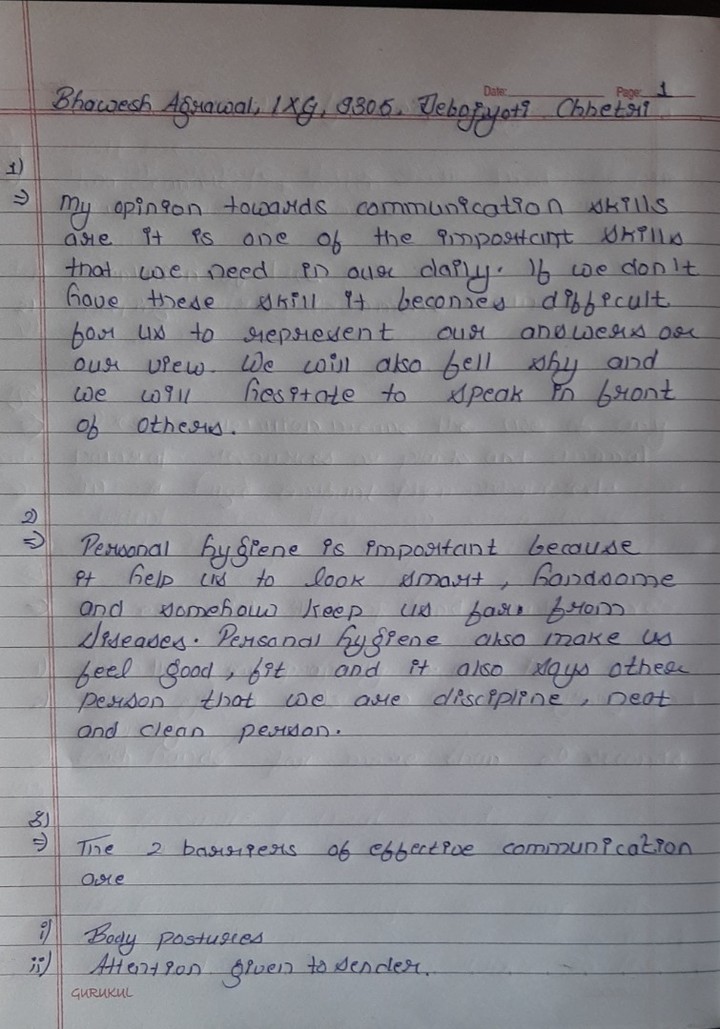 Date: Page: 1
Bhawesh Agrawal, IXG, 9305, Debojyoti Chhetri
1)
⇒ My opinion towards communication skills
are it is one of the important skills
that we need in our daily. If we don't
have these skill it becomes difficult
for us to represent our answers or
our view. We will also fell shy and
we will hesitate to speak in front
of others.
2)
⇒ Personal hygiene is important because
it help us to look smart, handsome
and somehow keep us far from
diseases. Personal hygiene also make us
feel good, fit and it also says other
person that we are discipline, neat
and clean person.
3)
⇒ The 2 barriers of effective communication
are
i) Body postures
ii) Attention given to sender.
GURUKUL